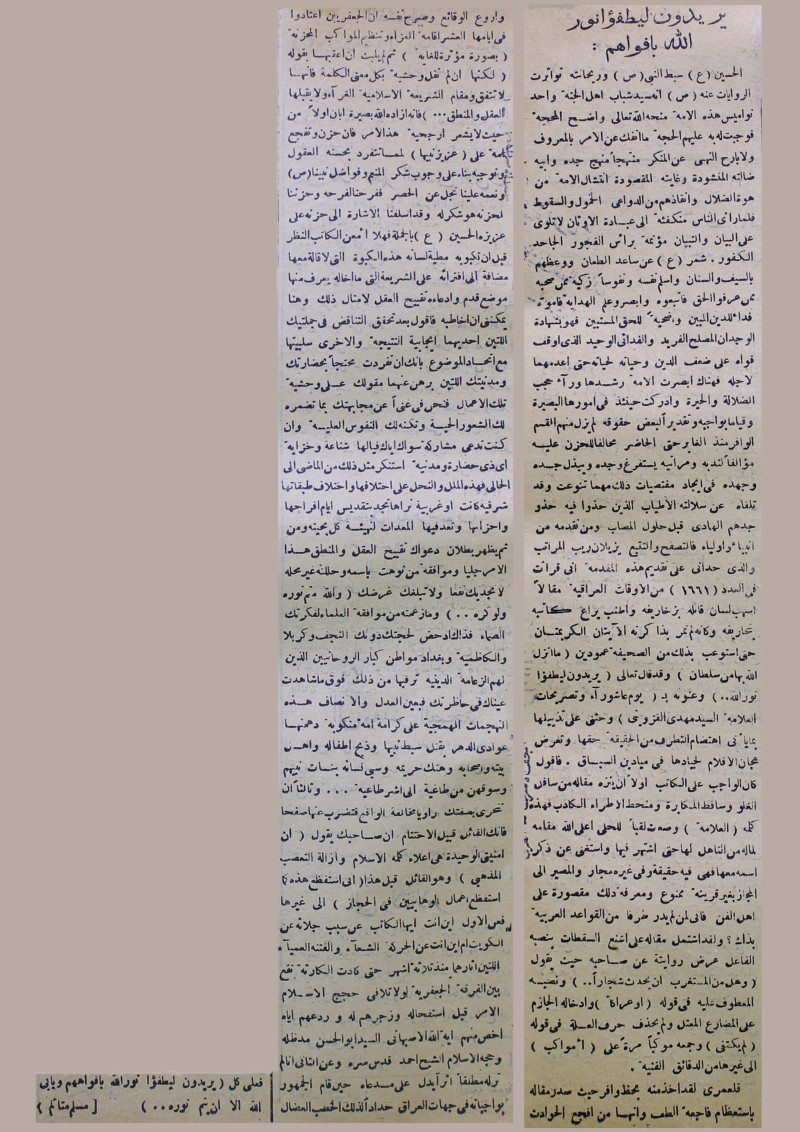 يريدون ليطفؤا نور
الله بافواهم :
الحسين (ع) سبط النبي (ص) وريحانته تواترت
الروايات عنه (ص) انه سيد شباب اهل الجنة واحد
نواميس هذه الامة منحه الله تعالى واضح المحجة
فوجبت له به عليهم الحجة ما انفك عن الامر بالمعروف
ولا بارح النهى عن المنكر منتهجاً منهج جده وابيه
ضالته المنشودة وغايته المقصودة انتشال الامة من
هوة الضلال وانقاذهم من الدواعى الخمول والسقوط
فلما رأى الناس منكفئة الى عبادة الاوثان لا تلوى
على البيان والتبيان مؤتمة برأس الفجور الجاحد
الكفور . شمر (ع) عن ساعد الطعان ووعظهم
بالسيف والسنان واسلم نفسه ونفوساً زكية ممن صحبه
ممن عرفوا الحق فاتبعوه وابصروا علم الهداية فاموه
فداء للدين المبين وضحية للحق المستبين فهو بشهادة
الوجدان المصلح الفريد والفدائى الوحيد الذى اوقف
قواه على ضعف الدين وحياته لحياته حتى اعدمهما
لاجله فهناك ابصرت الامة رشدها وراء حجب
الضلالة والحيرة وادركت حينئذ فى امورها البصيرة
وقياما بواجبه وتقديراً لبعض حقوقه لم يزل منهم القسم
الوافر منذ الغابر حتى الحاضر محالفا للحزن عليه
مؤالفاً لندبه ومراثيه يستفرغ وجده ويبذل جده
وجهده فى ايجاد مقتضيات ذلك مهما تنوعت وقد
تلقاه عن سلالته الأطياب الذين حذوا فيه حذو
جدهم الهادى قبل حلول المصاب ومن تقدمه من
انبياء واولياء فالتصفح والتتبع يزيلان ريب المراتب
والذى حدانى على تقديم هذه المقدمة انى قرأت
فى العدد (١٦٦١) من الاوقات العراقية مقالاً
اسهب لسان قائله بزخاريفه واطنب يراع كاتبه
بتخاريفه وكأنه لم تمر بذاكرته الآيتان الكريمتان
حتى استوعب بذلك من الصحيفة عمودين (ما انزل
الله بها من سلطان) وقد قال تعالى (يريدون ليطفؤا
نور الله..) وعنونه بـ (يوم عاشوراء وتصريحات
العلامة السيد مهدى القزوينى) وحثنى على تذييلها
بما يأتى اهتضام التطرف من الحقيقة حقها وتعرض
هجان الاقلام لجيادها فى ميادين السباق . فاقول
كان الواجب على الكاتب اولاً ان ينزه مقاله من سافل
الغلو وساقط المكابرة ومنحط الاطراء الكاذب فهذه
كلمة (العلامة) وضعت لقباً للحلى اعلى الله مقامه
لما له من التأهل لها حتى اشتهر فيها واستغنى عن ذكر
اسمه معها فهى فيه حقيقة وفى غيره مجاز والمصير الى
المجاز بغير قرينة ممنوع ومعرفة ذلك مقصورة على
اهل الفن فانى لمن لم يدر طرفا من القواعد العربية
بذاك ؟ ولقد اشتمل مقاله على اشنع السقطات بنصبه
الفاعل عرض روايته عن صاحبه حيث يقول
(وهل من المستغرب ان يحدث شجاراً..) ونصبه
المعطوف عليه فى قوله (او عراكا) وادخاله الجازم
على المضارع المعتل ولم يحذف حرف العلة فى قوله
(لم يكتفى) وجمعه موكباً مرة على (امواكب)
الى غيرها من الدقائق الفنية .
فلعمرى لقد اخذ منه بحظ وافر حيث صدر مقاله
باستعظام فاجعة الطف وانها من افجع الحوادث
واروع الوقائع وصرح نفسه ان الجعفريين اعتادوا
فى ايامها العشر اقامة العزاء وتنظيم المواكب المحزنة
(بصورة مؤثرة للغاية) ثم لم يلبث ان اعقبها بقوله
(لكنها ان لم نقل وحشية بكل معنى الكلمة فانها
لا تتفق ومقام الشريعة الاسلامية الغراء ولا يقبلها
العقل والمنطق...) فانه ازاده الله بصيرة ابان اولاً من
حيث لا يشعر ارجحية هذا الامر فان حزن وتفجع
امة على (عزيز نبيها) لمما تتفرد بحسنه العقول
وتوجبه بناء على وجوب شكر المنعم وفواضل نبينا (ص)
ونعمه علينا تجل عن الحصر ففرحنا لفرحه وحزننا
لحزنه هو شكر له وقد اسلفنا الاشارة الى حزنه على
عزيزه الحسين (ع) بالجملة فهلا أمعن الكاتب النظر
قبل ان تكبو به مطية لسانه هذه الكبوة التى لا اقالة معها
مضافة الى افترائه على الشريعة التى ما اخاله يعرف منها
موضع قدم وادعاءه تقبيح العقل لامثال ذلك وهنا
يمكننى ان اخاطبه فاقول بعد تحقق التناقض فى جملتيك
اللتين احديهما ايجابية النتيجة والاخرى سلبيتها
مع اتحاد الموضوع بانك ان تفردت محتجاً بحضارتك
ومدنيتك اللتين برهن عنهما مقولك على وحشية
تلك الاعمال فنحن فى غنى عن مجابهتك بما تضمره
لك الشعور الحية وتكنه لك النفوس العلية وان
كنت تدعى مشاركة سواك اياك فيالها شناعة وخزاية
اى ذى حضارة ومدنية استنكر مثل ذلك من الماضى الى
الحالى فهذه الملل والنحل على اختلافها واختلاف طبقاتها
شرقية كانت او غربية نراها تجد بتقديس ايام افراحها
واحزانها وتعد فيها المعدات لتهيئة كل بحينه ومن
ثم يظهر بطلان دعواك تقبيح العقل والمنطق هذا
الامر جليا وموافقة من نوهت باسمه وحللته غير محله
لا تجديك نفعا ولا تبلغك غرضك (والله متم نوره
ولو كره..) وما زعمته من موافقة العلماء لفكرتك
الصماء فذاك ادحض لحجتك دونك النجف وكربلا
والكاظمية وبغداد مواطن كبار الروحانيين الذين
لهم الزعامة الدينية ترفيها من ذلك فوق ما شاهدت
عيناك فى حاظرتك فبعين العدل والانصاف هذه
التهجمات الهمجية على كرامة امة منكوبة دهمتها
عوادى الدهر بقتل سبط نبيها وذبح اطفاله واهل
بيته واصحابه وهتك حريمه وسبى نسائه بنات نبيهم
وسوقهن من طاغية الى اشر طاغية ... وثالثاً ان
تتحرى بصفتك راويا مخالفة الواقع فتضرب عنها صفحا
فانك القائل قبيل الاختتام ان صاحبك يقول (ان
امنيتى الوحيدة هى اعلاء كلمة الاسلام وازالة التعصب
المذهبى) وهو القائل قبل هذا (انى استفظع هذه كما
استفظع اعمال الوهابيين فى الحجاز) الى غيرها
فعن الاول اين انت ايها الكاتب عن سبب جلائه عن
الكويت ام اين انت عن الحركة الشعاء والفتنة العمياء
اللتين اثارهما منذ ثلاثة اشهر حتى كادت الكارثة تقع
بين الفرقة الجعفرية لولا تلافى حجج الاسلام
الامر قبل استفحاله وزجرهم له وردعهم اياه
اخص منهم اية الله الاصبهانى السيد ابو الحسن مد ظله
وحجة الاسلام الشيخ احمد قدس سره وعن الثانى انا لم
نر له مطلقاً أثراً يدل على مدعاه حين قام الجمهور
بواجباته فى جهات العراق حداداً لذلك الخطب العضال
فعلى كل (يريدون ليطفؤا نور الله بافواههم ويابى
الله الا ان يتم نوره..) [مسلم متألم]